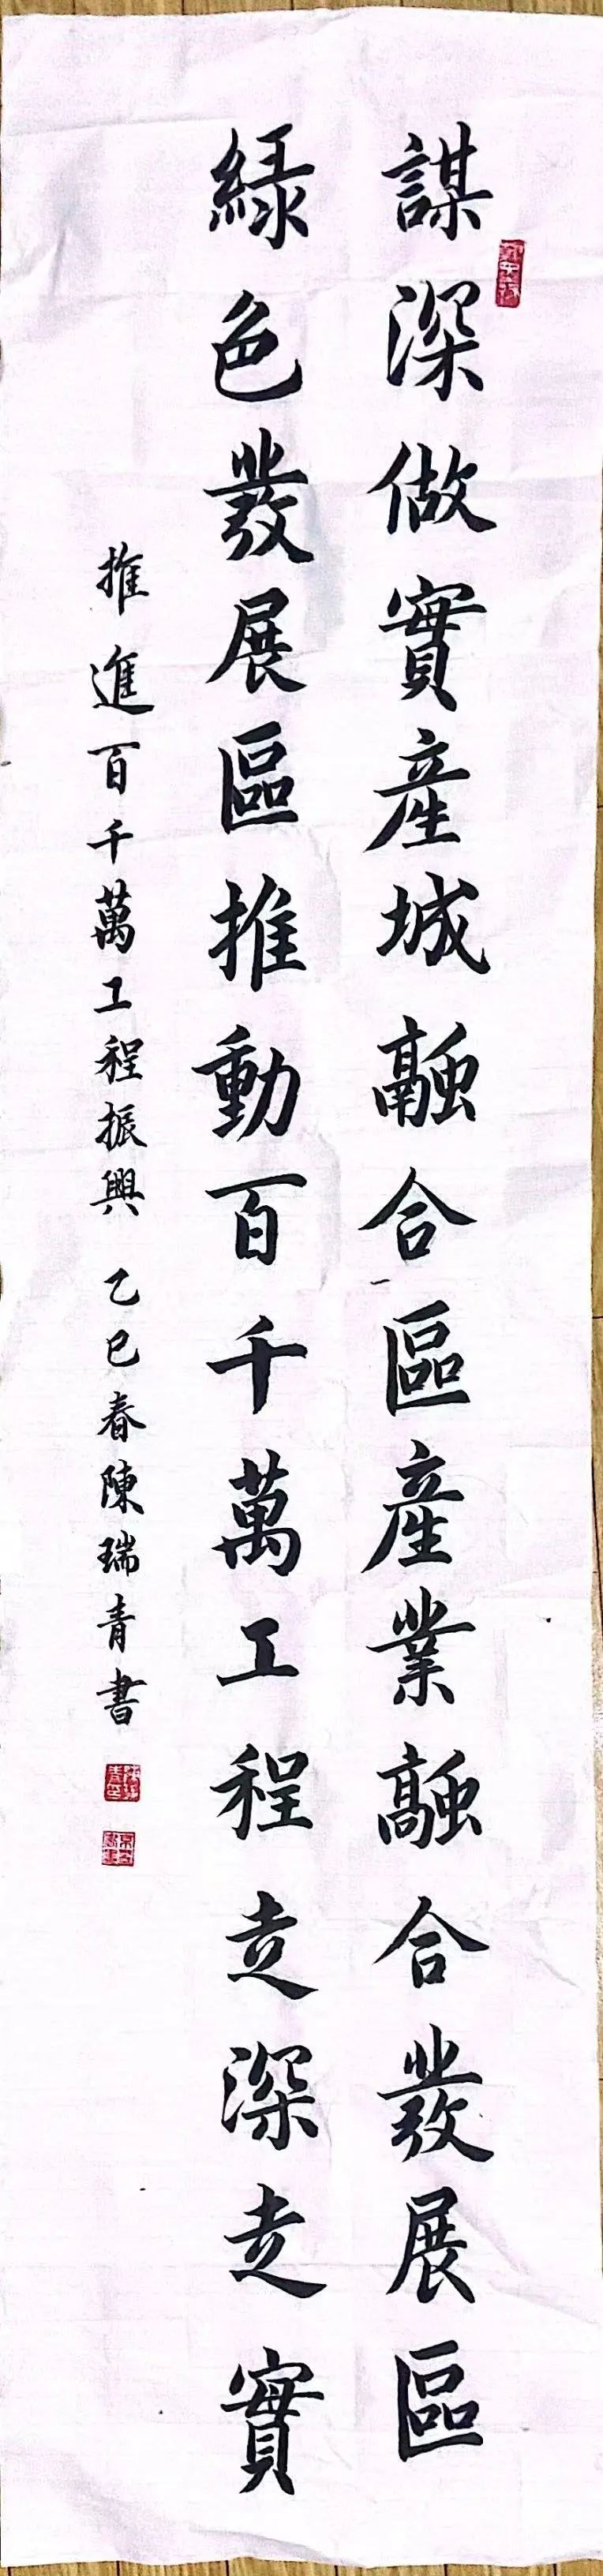 謀深做實産城融合區産業融合發展區
緑色發展區推動百千萬工程走深走實
推進百千萬工程振興 乙巳春陳瑞青書